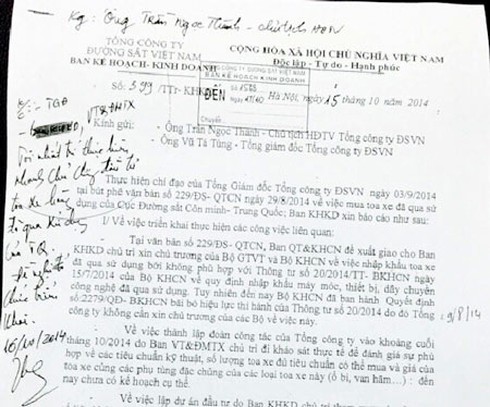 Kg: Ông Trần Ngọc Thành - Chủ tịch HĐTV
TỔNG CÔNG TY
ĐƯỜNG SẮT VIỆT NAM
BAN KẾ HOẠCH- KINH DOANH
CỘNG HÒA XÃ HỘI CHỦ NGHĨA VIỆT NAM
Độc lập - Tự do - Hạnh phúc
TỔNG CÔNG TY ĐƯỜNG SẮT VIỆT NAM
BAN KẾ HOẠCH KINH DOANH
ĐẾN
Số: 599 /TTr- KHKD
Hà Nội, ngày 15 tháng 10 năm 2014
Kính gửi: - Ông Trần Ngọc Thành - Chủ tịch HĐTV Tổng công ty ĐSVN
- Ông Vũ Tá Tùng - Tổng giám đốc Tổng công ty ĐSVN
Thực hiện chỉ đạo của Tổng Giám đốc Tổng công ty ĐSVN ngày 03/9/2014
tại bút phê văn bản số 229/ĐS- QTCN ngày 29/8/2014 về việc mua toa xe đã qua sử
dụng của Cục Đường sắt Côn minh- Trung Quốc; Ban KHKD xin báo cáo như sau:
1/ Về việc triển khai thực hiện các công việc liên quan:
Tại văn bản số 229/ĐS- QTCN, Ban QT&KHCN đề xuất giao cho Ban
KHKD chủ trì xin chủ trương của Bộ GTVT và Bộ KHCN về việc nhập khẩu toa xe
đã qua sử dụng bởi không phù hợp với Thông tư số 20/2014/TT- BKHCN ngày
15/7/2014 của Bộ KHCN về quy định nhập khẩu máy móc, thiết bị, dây chuyền
công nghệ đã qua sử dụng. Tuy nhiên đến nay Bộ KHCN đã ban hành Quyết định
số:2279/QĐ- BKHCN bãi bỏ hiệu lực thi hành của Thông tư số 20/2014 do đó Tổng
công ty không cần xin chủ trương của các Bộ về việc này.
Về việc thành lập đoàn công tác của Tổng công ty vào khoảng cuối
tháng 10/2014 do Ban VT&ĐMTX chủ trì đi khảo sát thực tế để đánh giá sự phù
hợp về các tiêu chuẩn kỹ thuật, số lượng toa xe đủ tiêu chuẩn có thể mua và giá của
toa xe cũng các phụ tùng đặc chủng của các loại toa xe này (ổ bi, van hãm...) : đến
nay chưa có kế hoạch cụ thể.
Về việc lập dự án đầu tư do Ban KHKD chủ trì
- TGĐ
VT&ĐMTX
toa xe
đã qua sử dụng
của TQ.
16/10/2014